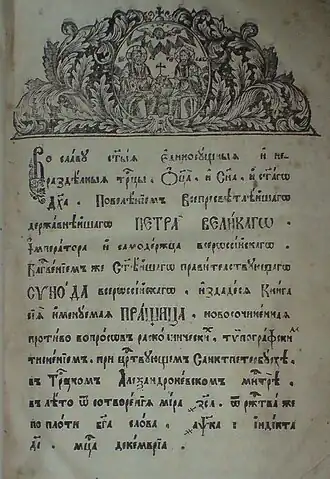 Во славу ст҃ыѧ единосущныѧ и не-
раздѣлныѧ трⷪ҇цы, Ѻц҃а, и Сн҃а, и ст҃агѡ
Дх҃а. Повелѣнїемъ Всепресвѣтлѣйшагѡ
державнѣйшагѡ ПЕТРА ВЕЛИКАГѠ
Їмператора и самодержца всерѡссїйскагѡ.
Блг҃венїемъ же Ст҃ѣйшагѡ правителствующагѡ
СУНОДА всерѡссїйскагѡ. издадесѧ Книга
сїѧ именуемаѧ ПРАЩИЦА, новосочиненнаѧ
противо вопросѡвъ расколническихъ, тѵпографскимъ
тисненїемъ, при цр҃ствующемъ Санктпетербурхѣ,
въ Трⷪ҇цкомъ Алеѯандроневскомъ мн҃трѣ,
въ лѣто ѿ сотворенїѧ мїра ҂зсл҃, ѿ рж҃тва же
по плоти бг҃а слова, ҂аѱк҃а индїкта
мц҃а декемврїа.